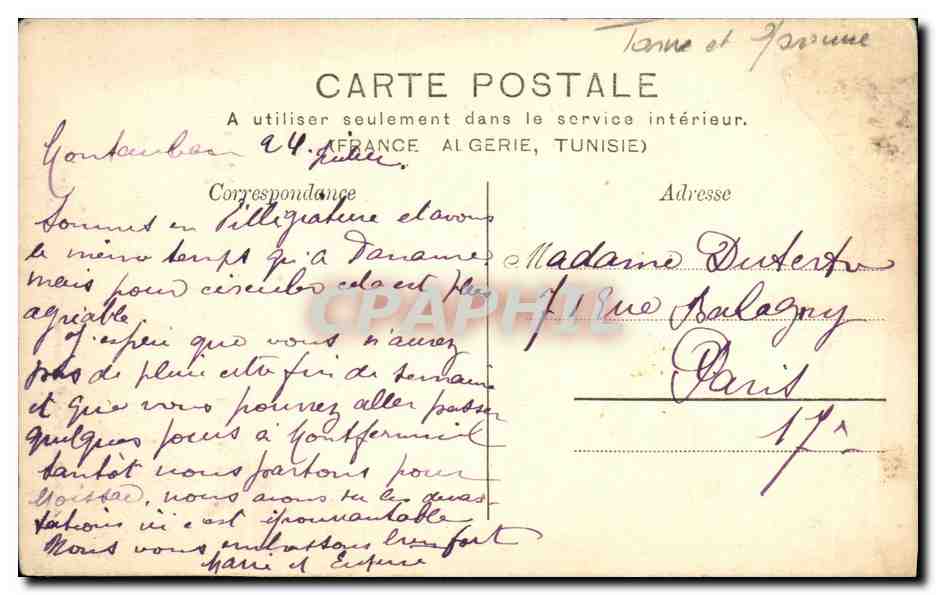 Tarn et Garonne
CARTE POSTALE
A utiliser seulement dans le service intérieur.
(FRANCE ALGERIE, TUNISIE)
Montauban 24 Juillet
Correspondance
Sommes en villégiature et avons
le même temps qu'à
mais pour circuler cela est plus
agréable.
J'espère que vous n'aurez
pas de pluie cette fin de semaine
et que vous pourrez aller passer
quelques jours à Montfermeil
tantôt nous partons pour
Moissac, nous avons vu les dévas-
tations ici c'est épouvantable
Nous vous embrassons bien fort
Marie et Eugène
Adresse
Madame Dutertre
71 Rue Balagny
Paris
17e
CPAPHIL